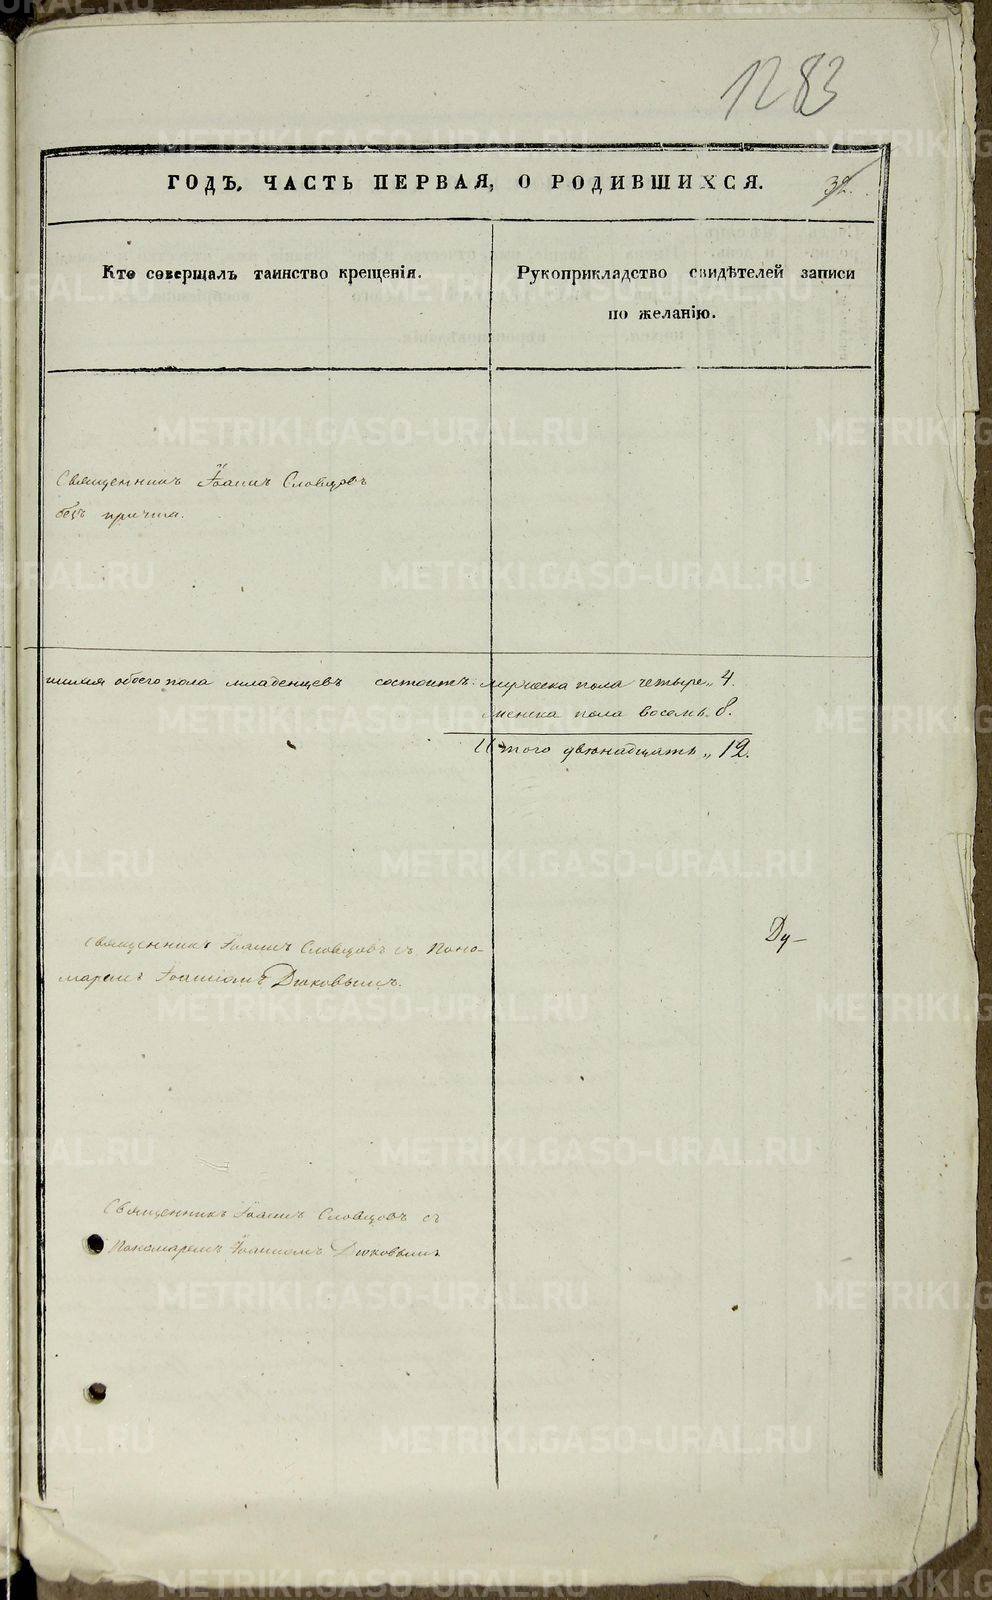 1283
ГОДЪ, ЧАСТЬ ПЕРВАЯ, О РОДИВШИХСЯ.
32.
Кто совершалъ таинство крещенія.
Рукоприкладство свидѣтелей записи
по желанію.
Священникъ Іоаннъ Словцовъ
безъ причта.
обоего пола младенцевъ состоитъ: мужеска пола четыре„ 4.
женска пола восемь„ 8.
Итого двѣнадцать „ 12.
Ду-
Священникъ Іоаннъ Словцовъ съ Поно-
маремъ Іоанномъ Дюковымъ.
Священникъ Іоаннъ Словцовъ съ
Пономаремъ Іоанномъ Дюковымъ
METRIKI.GASO-URAL.RU